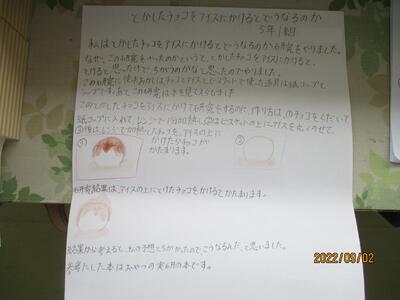 とかしたチョコをアイスにかけるとどうなるのか
5年1組
私はとかしたチョコをアイスにかけるとどうなるのか研究をやりました。
なぜ、この研究をやったのかというと、とかしたチョコをアイスにかけると、
とけると思ったけど ちがうのかなと思ったのでやりました。
この研究に使ったおかしはチョコとアイスとビスケットで使った道具は紙コップと
です。あとこの研究は本を見てくらべました
このとかしたチョコをアイスにかける研究をするのに、作り方は、①チョコをくだいて
紙コップに入れて、レンジで1分加熱し、②はビスケットの上にアイスを丸くのせて、
③後は、レンジで加熱したチョコを、アイスの上に
かけたらチョコが
かたまります。
①
②
研究結果は、アイスの上にとけたチョコをかけるとかたまります。
結果から考えると、私の予想とちがかったのでこうなるんだ、と思いました。
参考にした本はおやつの実験の本です。
2022/09/02